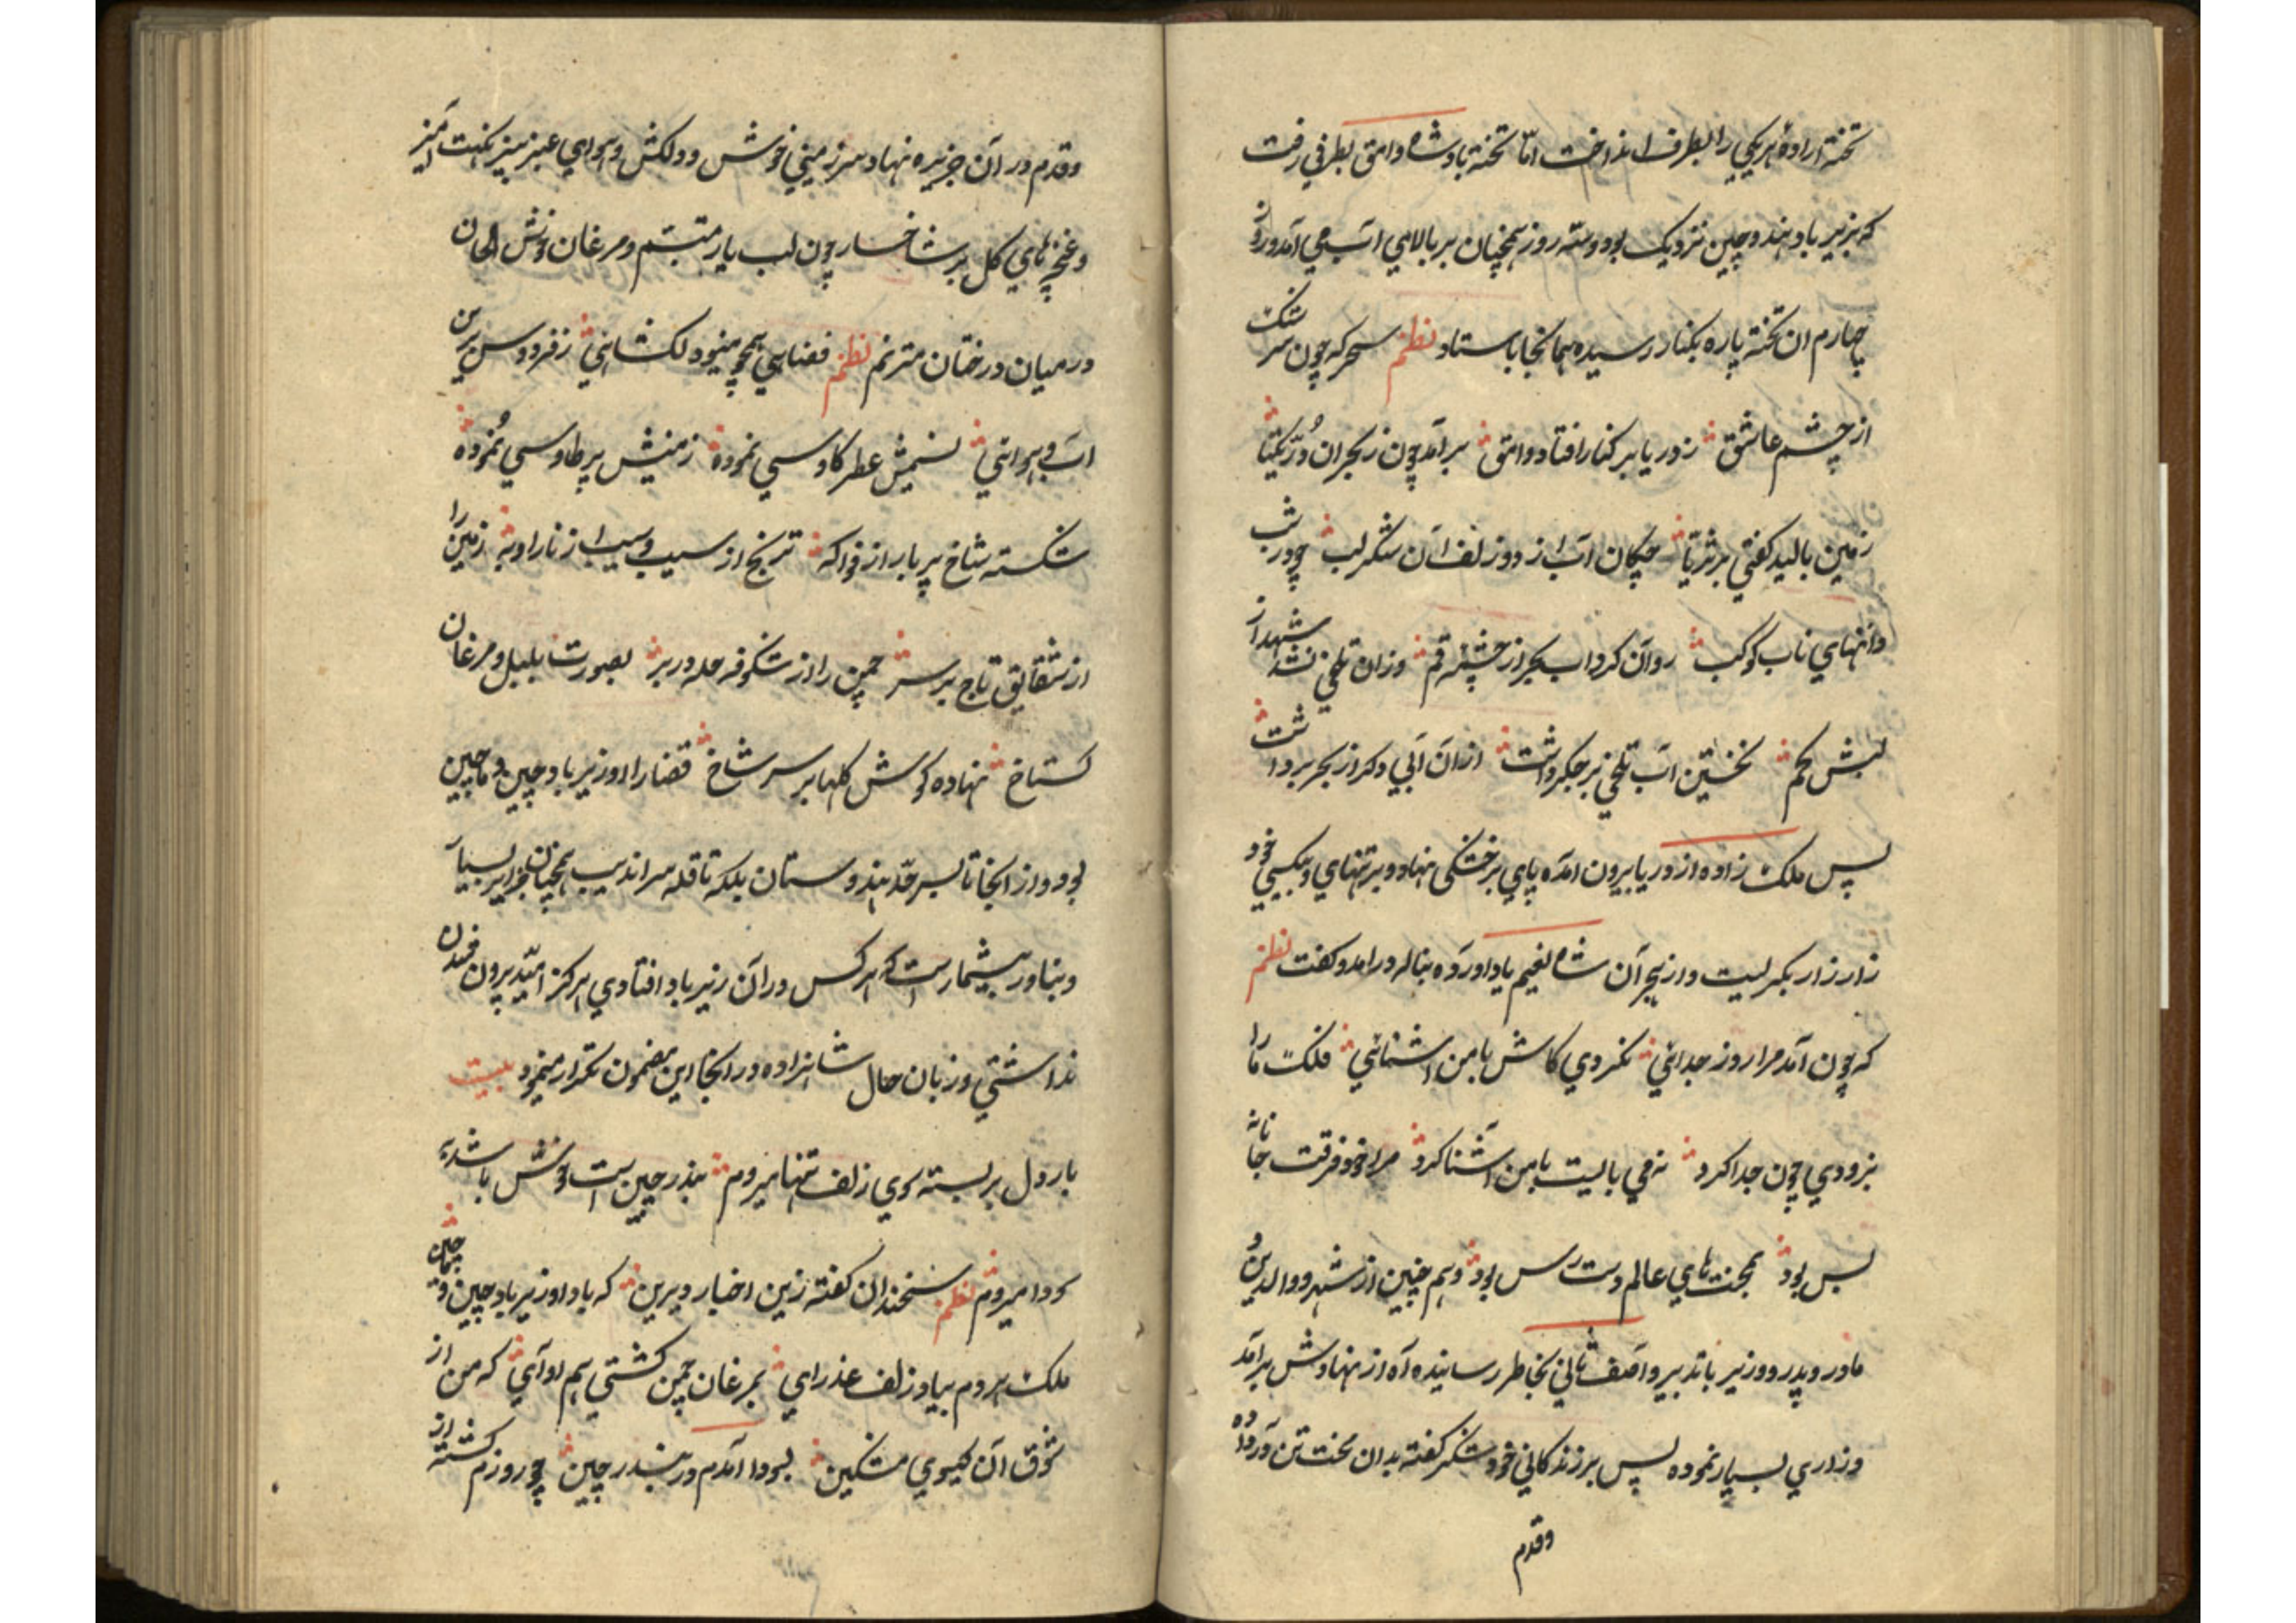 تخته اراده هر یکی را بطرف انداخت امّا تخته پادشاه وامق بطرفی رفت
که بزیرباد هند و چین نزدیک بود و سه روز همچنان بر بالای آب می آمد روز
چهارم ان تخته پاره بکنار رسیده همانجا باستاد نظم سحر که چون سرشک
از چشم عاشق ز دریا بر کنار افتاد وامق بر آمد چون ز بحر ان دُرّ یکتا
زمین بالید گفتی بر ثریّا چکان آب از دو زلف آن شکر لب چو در شب
دانهای ناب کوکب روان کرد اب بحر از چشمه قم وزان تلخی نشد شهد از
لبش کم نخستین آب تلخی بر جگر داشت ازان آبی دکر از بحر برداشت
پس ملک زاده از دریا بیرون آمده پای بر خشکی نهاد و بر تنهای و بیکسی خود
زار زار بکریست و از هجر آن شاه نعیم یاد اورده بناله در امد و کفت نظم
که چون آمد مرا روز جدائی نکردی کاش با من اشنائی فلک ما را
بزودی چون جدا کرد نمی بایست با من آشنا کرد مرا خود فرقت جانانه
بس بود بمحنت های عالم دست رس بود و هم چنین از شهر و والدین و
مادر و پدر و وزیر با تدبیر و آصف ثانی بخاطر رسانیده آه از نهادش بر آمد
وزاری بسیار نموده پس بر زندکانی خود شکر کفته بدان محنت تن در داده
وقدم
وقدم در آن جزیره نهاد سرزمینی خوش و دلکش و هوای عنبر بیز نکهت آمیز
و غنچه های کل بر شاخسار چون لب یار متبسّم و مرغان خوش الحان
در میان درختان مترنم نظم فضای همچو مینو دلکشائی ز فردوس برین
آب و هوائی نسیمش عطر کاوسی نموده زمینش پر طاوسی نموده
شکسته شاخ پر بار از فواکه ترنج از سیب و سیب از نار او به زمین را
از شقایق تاج بر سر چمن را از شکوفه حله در بر بصورت بلبل و مرغان
کستاخ نهاده کوش کلها بر سر شاخ قضا را او زیرباد چین و ماچین
بود و از انجا تا بسر حدّ هندوستان بلکه تا قله سراندیب همچنان جزایر بسیار
و بنادر بیشمارست که هر کس در آن زیرباد افتادی هرکز امّید بیرون شدن
نداشتی و زبان حال شاهزاده در انجا این مضمون تکرار مینمود بیت
بار دل بر بسته بوی زلف تنها میروم بندر چین است خوش باشد به
سودا میروم نظم سخندان کفته زین اخبار دیرین که باد او زیرباد چین و ماچین
ملک هر دم بیاد زلف عذرای بمرغان چمن کشتی هم اوآی که من از
شوق آن کیسوی مشکین بسودا آمدم در بندر چین چو روزم کشته از